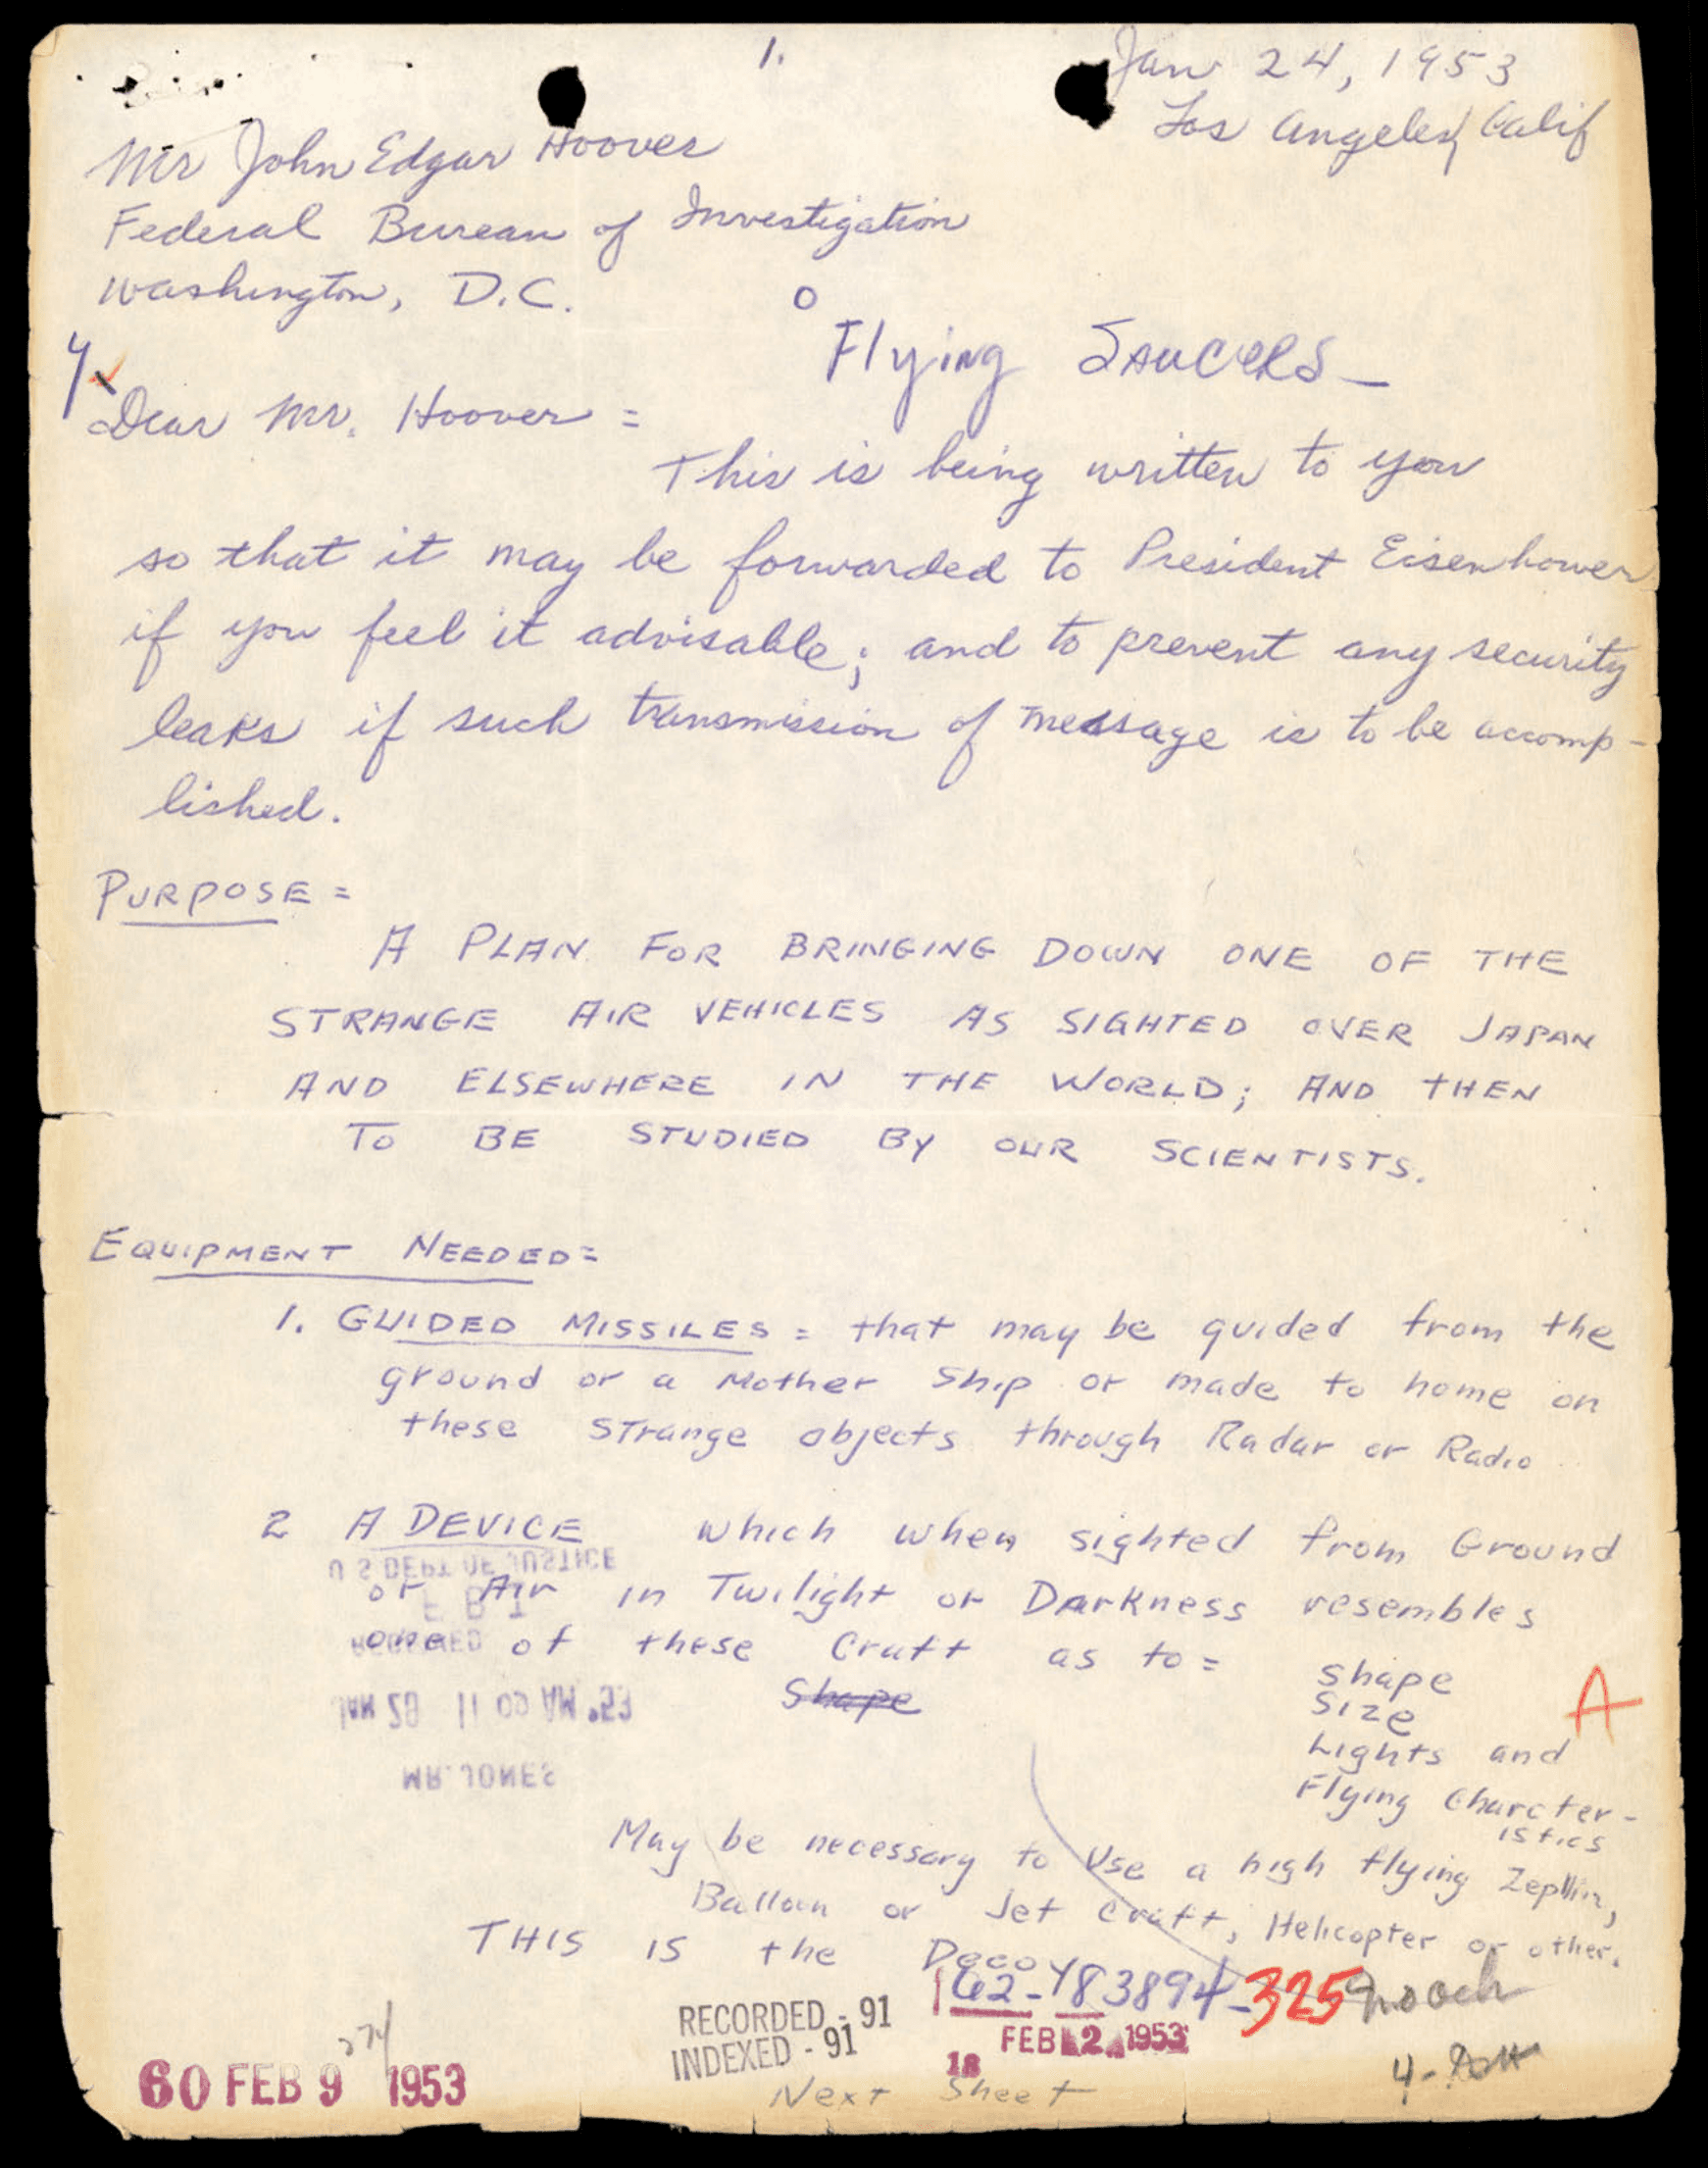 1.
Jan 24, 1953
Los Angeles, Calif
Mr John Edgar Hoover
Federal Bureau of Investigation
Washington, D.C.
Flying SAUCERS -
Dear Mr. Hoover =
This is being written to you
so that it may be forwarded to President Eisenhower
if you feel it advisable; and to prevent any security
leaks if such transmission of message is to be accomp-
lished.
PURPOSE =
A PLAN FOR BRINGING DOWN ONE OF THE
STRANGE AIR VEHICLES AS SIGHTED OVER JAPAN
AND ELSEWHERE IN THE WORLD; AND THEN
TO BE STUDIED BY OUR SCIENTISTS.
EQUIPMENT NEEDED =
1. GUIDED MISSILES = that may be guided from the
ground or a Mother Ship or made to home on
these strange objects through Radar or Radio
2 A DEVICE which when sighted from Ground
U S DEPT OF JUSTICE
or Air in Twilight or Darkness resembles
F B I
one of these Craft as to =
RECEIVED
Shape
Shape
Size
JAN 29 11 00 AM '53
A
Lights and
MR. JONES
Flying Charcter-
istics
May be necessary to Use a high flying Zepllin,
Balloon or Jet Craft, Helicopter or other.
THIS IS the Decoy
162-83894-325
RECORDED - 91
INDEXED - 91
FEB 2 1953
18
60 FEB 9 1953
Next Sheet